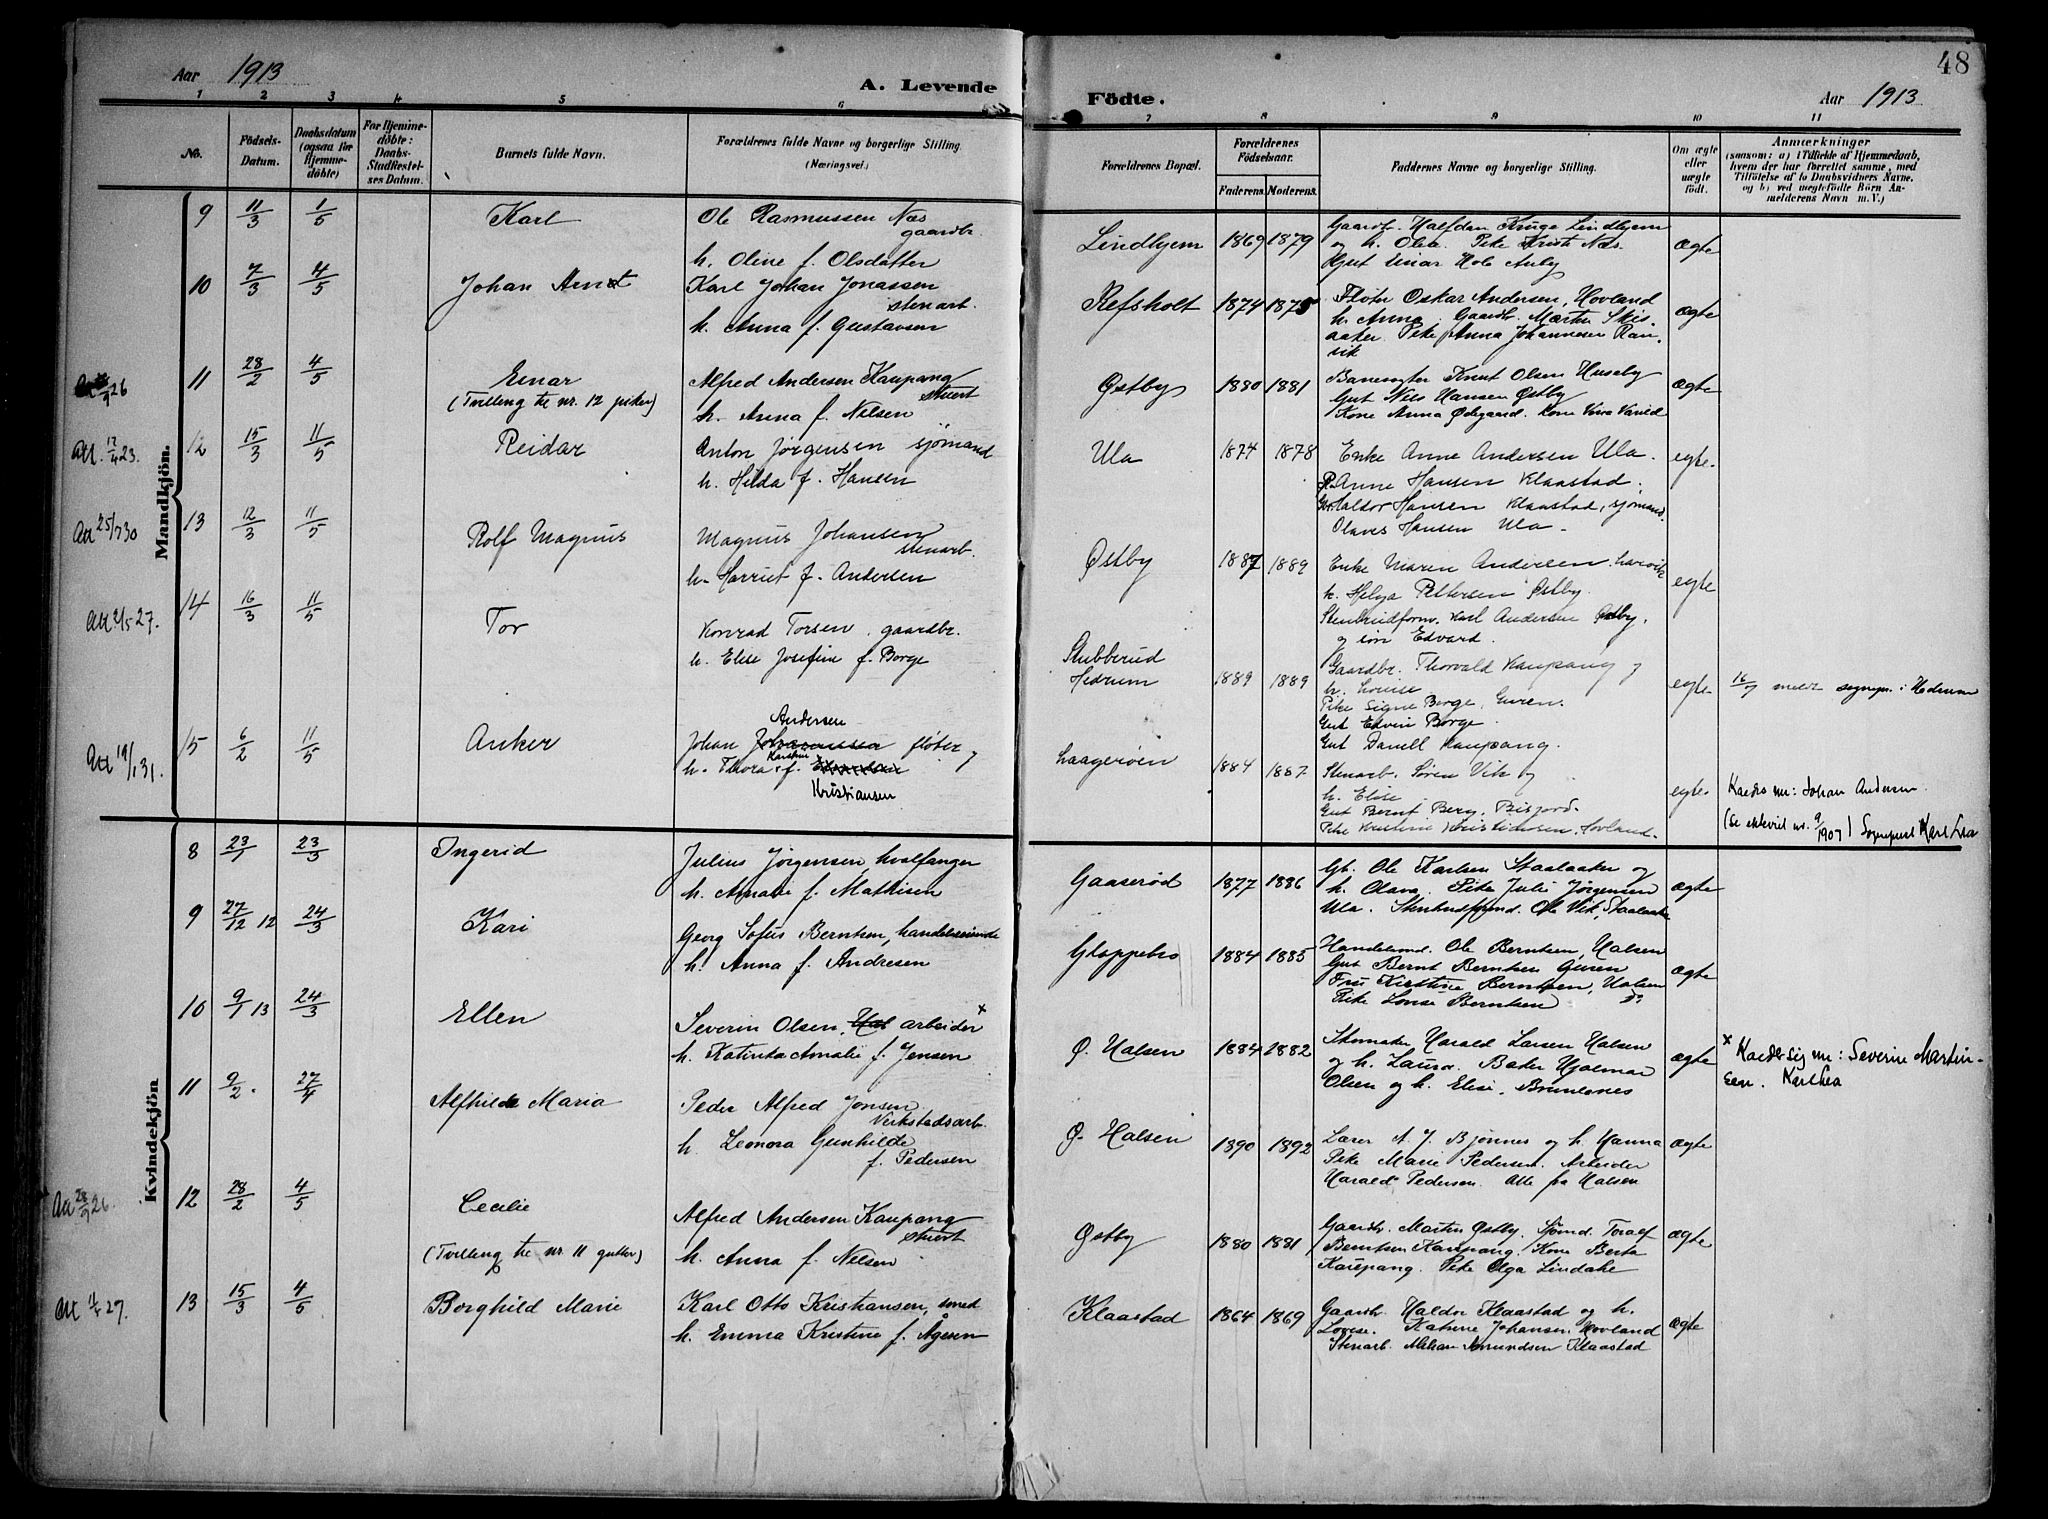 Aar 1913
A. Levende
Födte.
48
Aar 1913
1 2 3 4 5 6 7 8 9 10 11
No.
Födsels-Datum.
Daabsdatum (ogsaa for Hjemmedöbte)
For Hjemmedöbte: Daabs-Stadfæstelses Datum.
Barnets fulde Navn.
Forældrenes fulde Navne og borgerlige Stilling.
(Næringsvei.)
Forældrenes Bopæl.
Forældrenes Födselsaar.
Faderens. Moderens.
Faddernes Navne og borgerlige Stilling.
Om ægte eller uægte födt.
Anmærkninger
(saasom: a) i Tilfælde af Hjemmedaab, hvem der har forrettet samme, med Tilföielse af to Daabsvidners Navne, og b) ved uægtefödte Börn Anmelderens Navn m. V.)
Mandkjön.
9 11/3 1/5 Karl
Ole Rasmussen Næs
gaardbr.
h. Oline f. Olsdatter
Lindhjem 1869 1879
Gaardbr. Halfdan Kruge Lindhjem
og h. Olea. Pike Kristi Næs.
Gut Einar Hole Auby
ægte
10 7/3 4/5 Johan Arnt
Karl Johan Jonassen
stenarb.
h. Anna f. Gustavsen
Refsholt 1874 1875
Fløter Oskar Andersen, Hovland
h. Anna. Gaardbr. Martin Skis
aaker. Pike Anna Johannesen Ran
vik
ægte
11 28/2 4/5 Einar
(Tvilling til nr. 12 piker)
Alfred Andersen Kaupang
stuert
h. Anna f. Nilsen
Østby 1880 1881
Banevogter Knut Olsen Huseby
Gut Nils Hansen Østby
Kone Anna Ødegaard. Kone
ægte
Att. 17/4 23.
12 15/3 11/5 Reidar
Anton Jørgensen sjømand
h. Hilda f. Hansen
Ula 1874 1878
Enke Anne Andersen Ula.
P. Anne Hansen Klaastad.
G. Haldor Hansen Klaastad, sjømand
Olaves Hansen Ula.
egte.
Att 25/7 30
13 12/3 11/5 Rolf Magnus
Magnus Johansen
stenarb.
h. Harriet f. Andersen
Østby 1887 1889
Enke Maren Andersen. Larvik
h. Helga Pettersen Østby.
Stenhudform. Karl Andersen Østby,
og søn Edvard.
egte
Att 2/5 27.
14 16/3 11/5 Tor
Konrad Torsen, gaardbr.
h. Elise Josefine f. Borge
Stubberud
Hedrum
1889 1889
Gaardbr. Thorvald Kaupang og
h. Louise
Pike Signe Borge, Guren.
Gut Edvin Borge.
Gut Daniell Kaupang.
egte.
16/9 meldt sognepr. i Hedrum
Att 19/1 31.
15 6/2 11/5 Anker
Andersen
Johan Johannessen fløter og
h. Thora Karoline f.
Kristiansen
Laagerøien 1884 1887
Stenarb. Søren Vik og
h. Elise
Gut Bernt Berg, Bisjord.
Pike Kristine Kristiansen. Hovland.
egte.
Kaedes nu: Johan Andersen
(Se nr. 9/1907) Sogneprest Karl Lea
Kvindekjön
8 23/1 23/3 Ingerid
Julius Jørgensen, hvalfanger
h. Amalie f. Mathisen
Gaaserød 1877 1886
Gb. Ole Karlsen Staalaaker og
h. Olava. Pike Julie Jørgensen
Ula. Stenhudformd. Ole Vik, Staalaaker
ægte
9 27/12 12 24/3 Kari
Georg Sofus Berntsen, handelsreisende
h. Anna f. Andresen
Gloppebro 1884 1885
Handelsmd. Ole Berntsen, Halsen
Gut Bernt Berntsen Guren
Fru Kirstine Berntsen, Halsen
Pike Lovise Berntsen do
ægte
10 9/1 13 24/3 Ellen
Severin Olsen, Hal arbeider x
h. Katinka Amalie f. Jensen
Ø. Halsen 1884 1882
Skomaker Harald Larsen Halsen
og h. Laura. Bader Hjalmar
Olsen og h. Elise, Brunlanes
ægte
x Kalder sig nu: Severin Martin-
sen. Karl Lea
11 9/2. 27/4 Alfhilde Maria
Peder Alfred Jonsen
Verkstadsarb.
h. Leonora Gunhilde
f. Pedersen
Ø. Halsen 1890 1892
Lærer A. J. Bjønnes og h. Hanna
Pike Marie Pedersen. Arbeider
Harald Pedersen. Alle fra Halsen
ægte
Att 28/9 26.
12 28/2 4/5 Cecilie
(Tvilling til nr. 11 gutter)
Alfred Andersen Kaupang
stuert
h. Anna f. Nilsen
Østby 1880 1881
Gaardbr. Martin Østby, Sjømd. Toralf
Berntsen Kaupang. Kone Berta
Kaupang. Pike Olga Lindake
ægte
13 15/3 4/5 Borghild Marie
Karl Otto Kristiansen, smed
h. Emma Kristine f. Ågesen
Klaastad 1864 1869
Gaardbr. Haldor Klaastad og h.
Lovise. Katrine Johansen, Hovland
Stenarb. Amundsen Klaastad
ægte